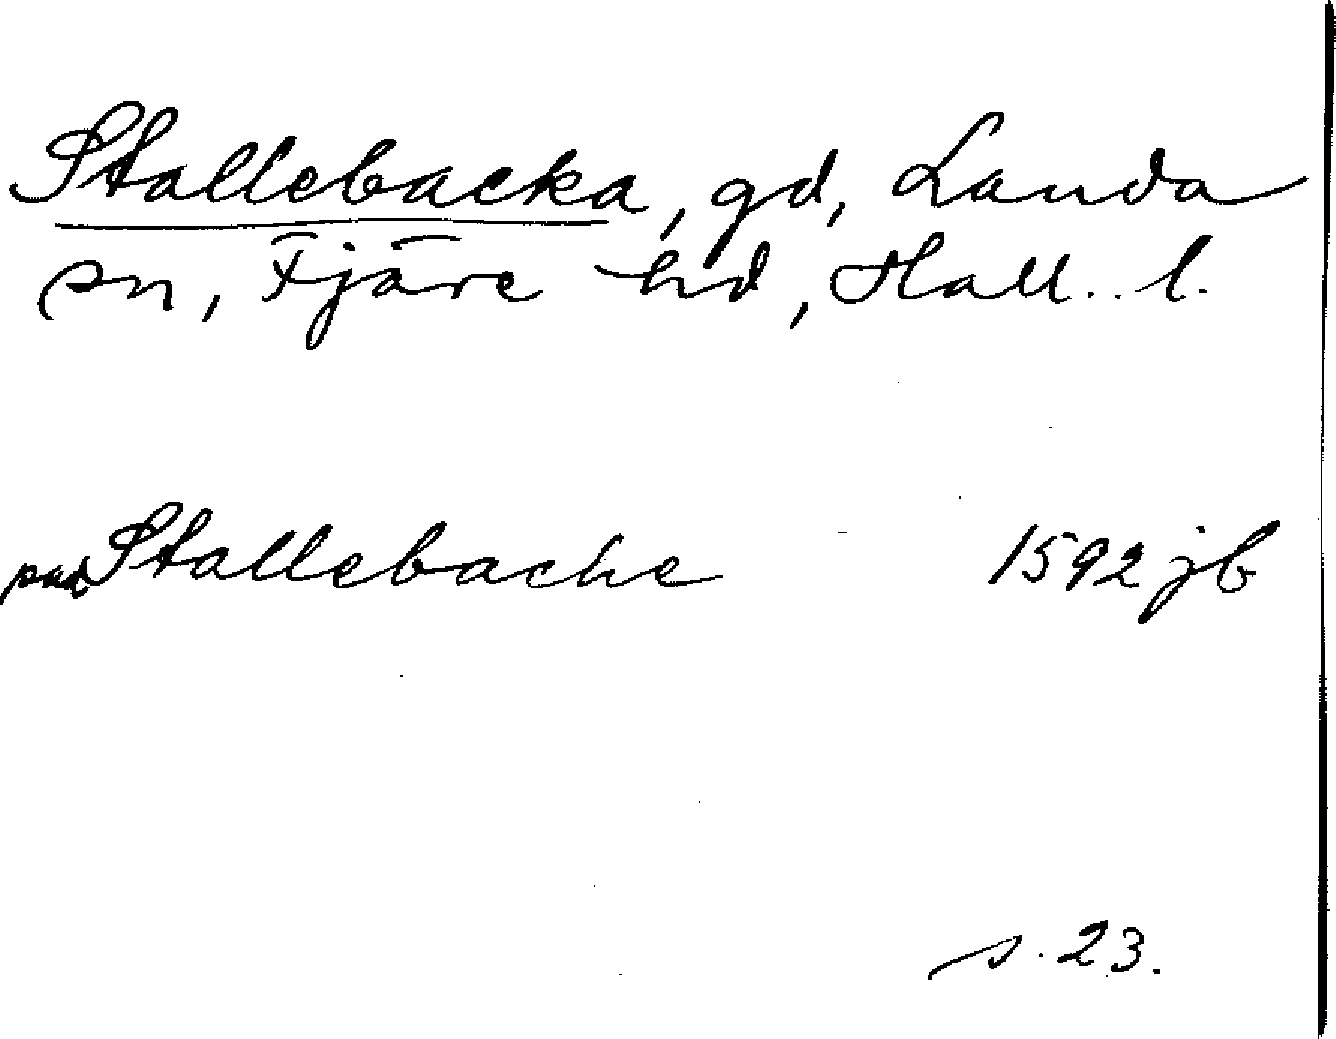 Stallebacka, gd, Landa
sn, Fjäre hd, Hall. l.
paa Stallebacke 1592 jb
s. 23.